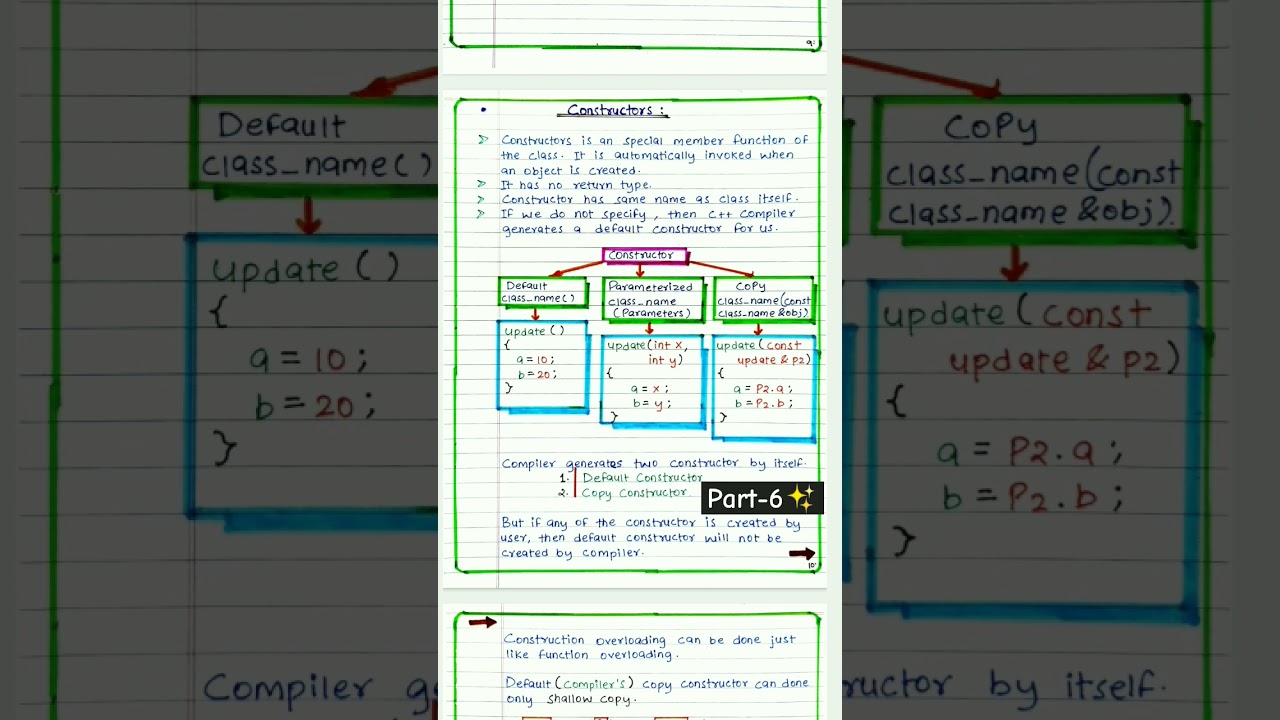 9.
• Constructors :
Constructors is an special member function of
the class. It is automatically invoked when
an object is created.
It has no return type.
Constructor has same name as class itself.
If we do not specify, then C++ compiler
generates a default constructor for us.
Constructor
Default
class_name()
Parameterized
class_name
(Parameters)
Copy
class_name(const
class_name &obj)
update()
{
a = 10;
b = 20;
}
update(int x,
int y)
{
a = x;
b = y;
}
update(const
update & P2)
{
a = P2.a;
b = P2.b;
}
Compiler generates two constructor by itself.
1. Default Constructor
2. Copy Constructor.
Part-6✨
But if any of the constructor is created by
user, then default constructor will not be
created by compiler.
10.
Construction overloading can be done just
like function overloading.
Default (compiler's) copy constructor can done
only shallow copy.
Default
class_name()
update()
{
a = 10;
b = 20;
}
Compiler g
Copy
class_name(const
class_name &obj).
update(const
update & P2)
{
a = P2.a;
b = P2.b;
}
ructor by itself.